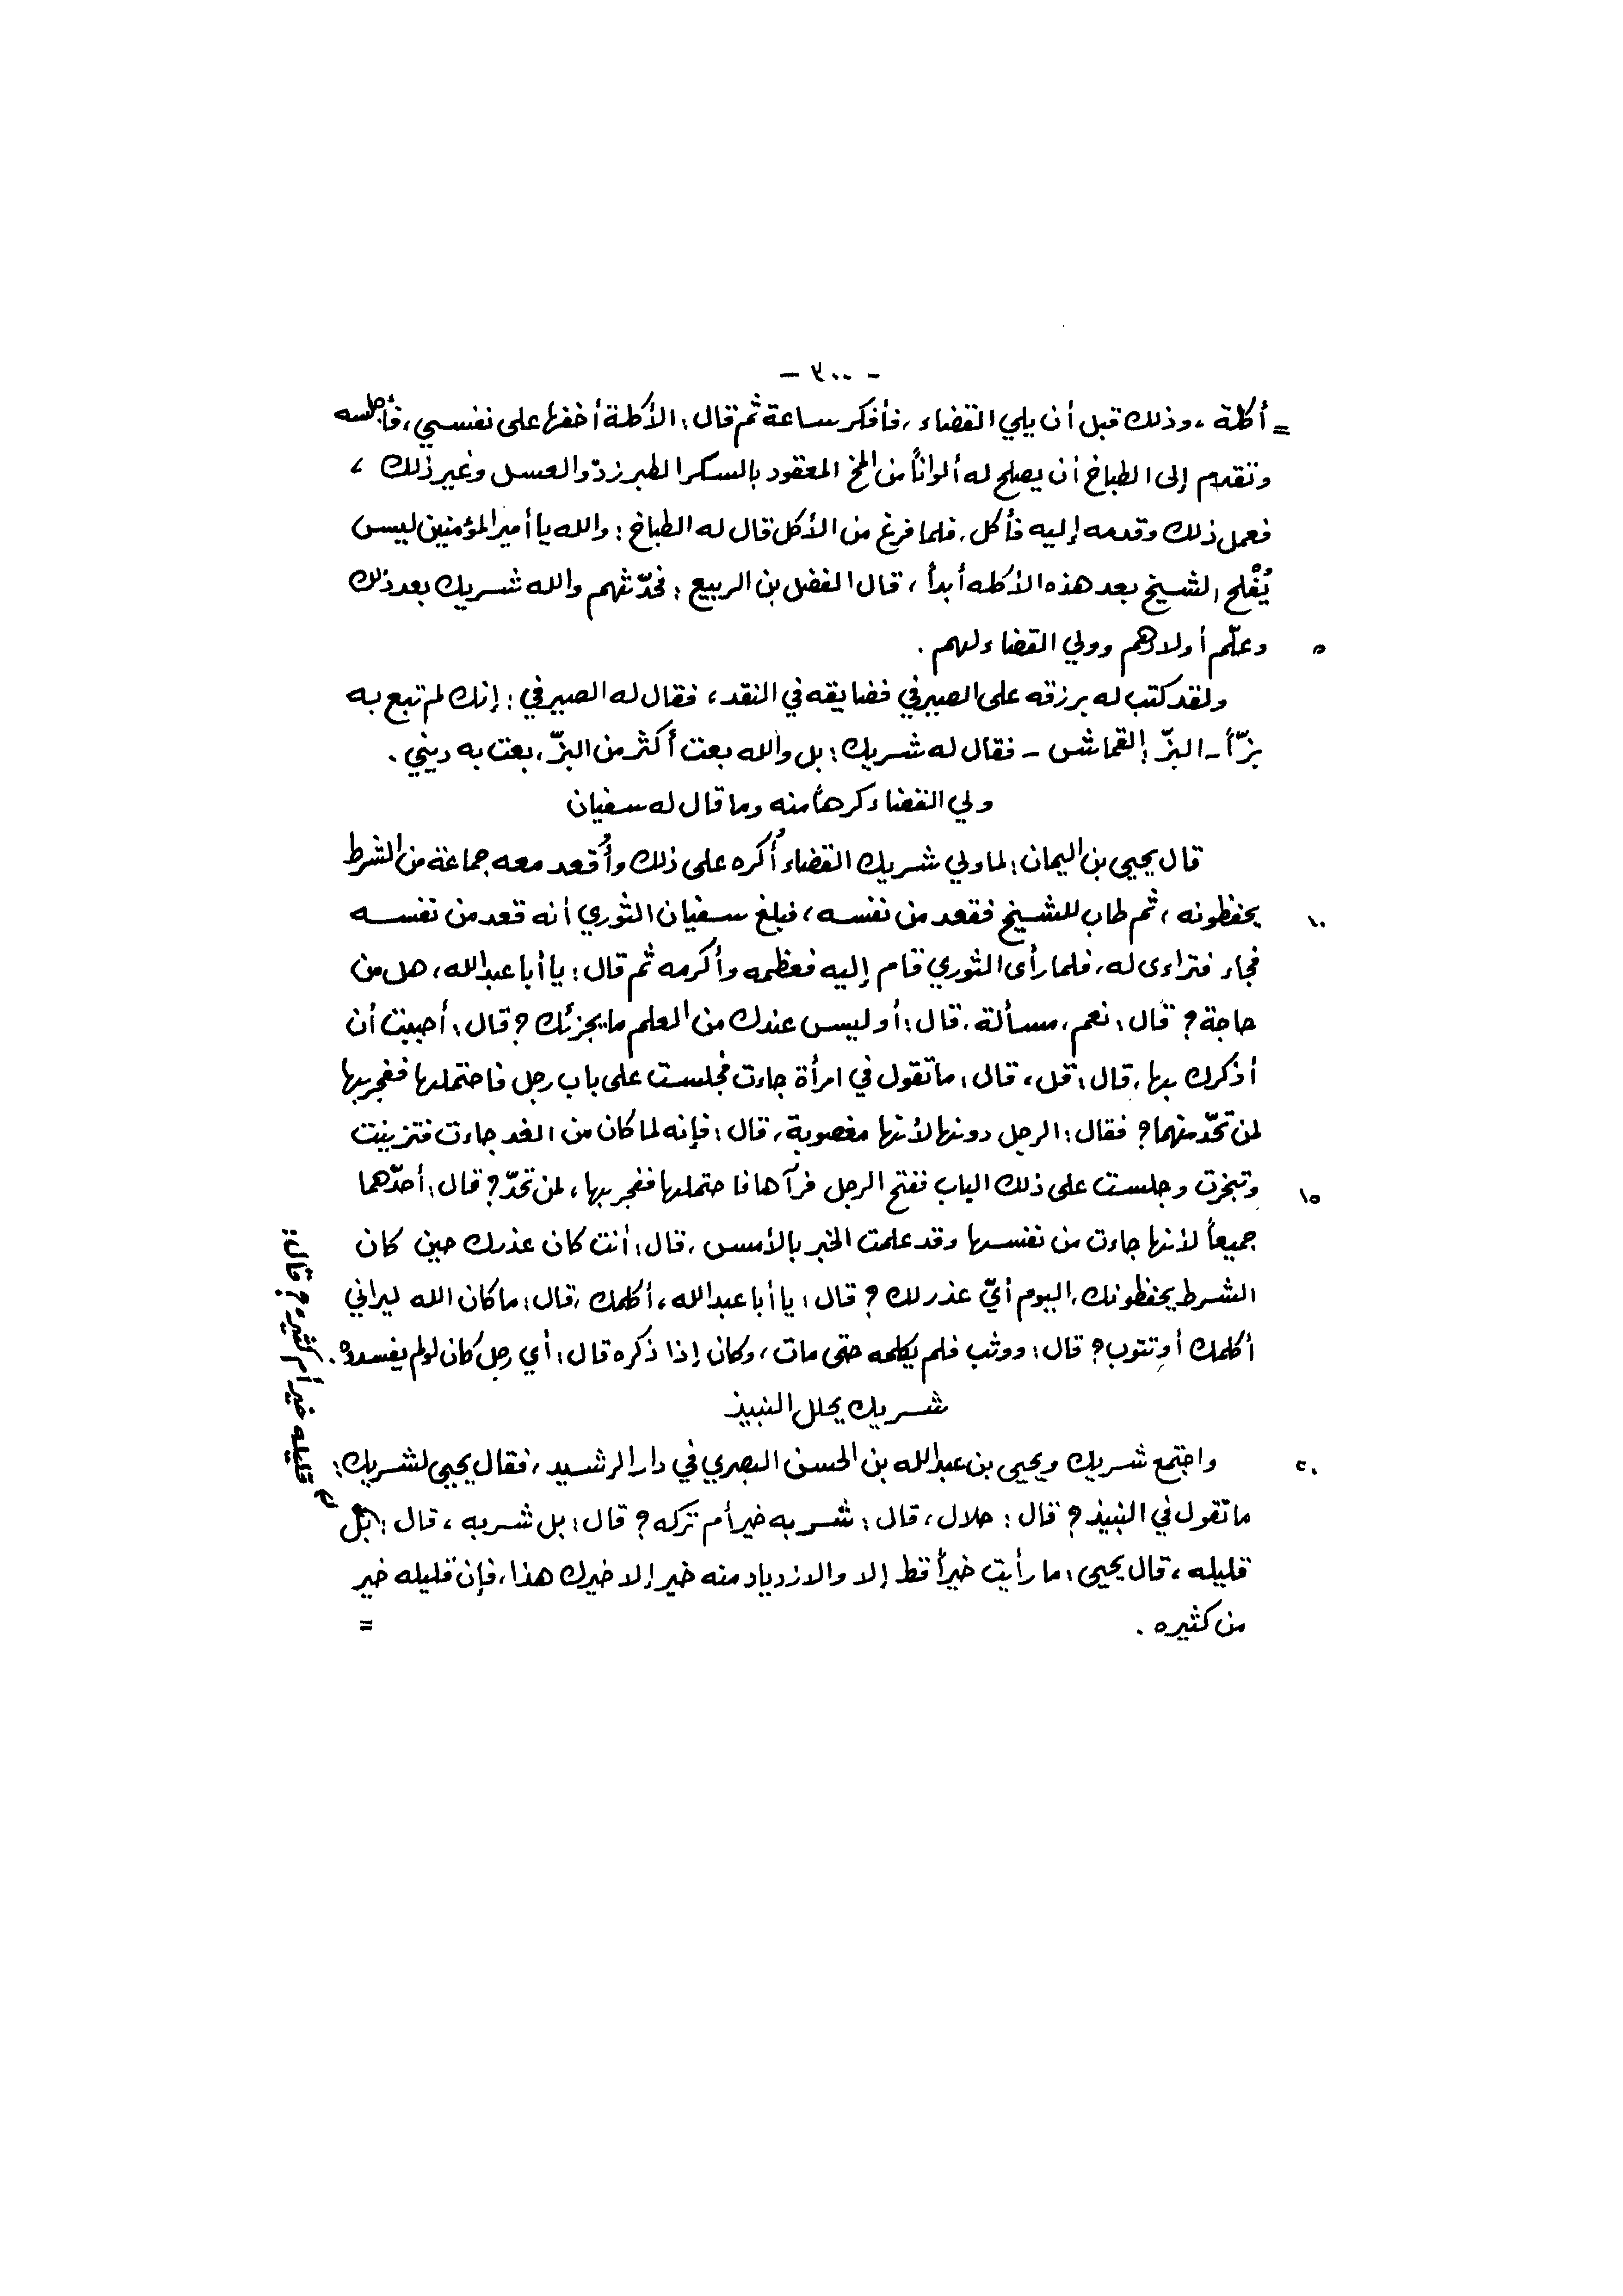 - ٣٠٠ -
= أكلة ، وذلك قبل أن يلي القضاء ، فأفكر ساعة ثم قال : الأكلة أخفها على نفسي ، فأجلسه
وتقدم إلى الطباخ أن يصلح له ألواناً من المخ المعقود بالسكر الطبرزدّ والعسل وغير ذلك ،
فعمل ذلك وقدمه إليه فأكل ، فلما فرغ من الأكل قال له الطباخ : والله يا أمير المؤمنين ليس
يُفْلح الشيخ بعد هذه الأكله أبداً ، قال الفضل بن الربيع : فحدّثهم والله شريك بعد ذلك
٥ وعلّم أولادهم وولي القضاء لهم .
ولقد كتب له برزقه على الصيرفي فضايقه في النقد ، فقال له الصيرفي : إنك لم تبع به
بزّاً ـ البزّ : القماش ـ فقال له شريك : بل والله بعت أكثر من البزّ ، بعت به ديني .
ولي القضاء كرهاً منه وما قال له سفيان
قال يحيى بن اليمان : لما ولي شريك القضاء أُكره على ذلك وأُقعد معه جماعة من الشرط
١٠ يحفظونه ، ثم طاب للشيخ فقعد من نفسه ، فبلغ سفيان الثوري أنه قعد من نفسه
فجاء فتراءى له ، فلما رأى الثوري قام إليه فعظمه وأكرمه ثم قال : يا أبا عبد الله ، هل من
حاجة ؟ قال : نعم ، مسألة ، قال : أو ليس عندك من العلم ما يجزئك ؟ قال : أحببت أن
أذكرك بها ، قال : قل ، قال : ما تقول في امرأة جاءت فجلست على باب رجل فاحتملها ففجر بها
لمن تحدّ منهما ؟ فقال : الرجل دونها لأنها مغصوبة ، قال : فإنه لما كان من الغد جاءت فتزينت
١٥ وتبخرت وجلست على ذلك الباب ففتح الرجل فرآها فاحتملها ففجر بها ، لمن تحدّ ؟ قال : أحدّهما
جميعاً لأنها جاءت من نفسها وقد علمت الخبر بالأمس ، قال : أنت كان عذرك حين كان
الشرط يحفظونك ، اليوم أيّ عذر لك ؟ قال : يا أبا عبد الله ، أكلمك ، قال : ما كان الله ليراني
أكلمك أو تتوب ؟ قال : ووثب فلم يكلمه حتى مات ، وكان إذا ذكره قال : أي رجل كان لو لم يفسدوه .
شريك يحلل النبيذ
٢٠ واجتمع شريك ويحيى بن عبد الله بن الحسن البصري في دار الرشيد ، فقال يحيى لشريك :
ما تقول في النبيذ ؟ قال : حلال ، قال : شربه خير أم تركه ؟ قال : بل شربه ، قال : بل
قليله خير أم كثيره ؟ قال :
قليله ، قال يحيى : ما رأيت خيراً قط إلا والازدياد منه خير إلا خيرك هذا ، فإن قليله خير
من كثيره . =